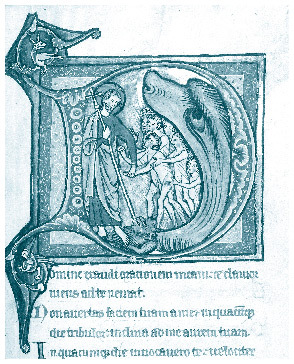 Domine exaudi orationem meam: et clamor
meus ad te ueniat.
Non auertas faciem tuam a me: in quacūq;
die tribulor: inclina ad me aurem tuam.
In quacumque die inuocauero te: uelociter